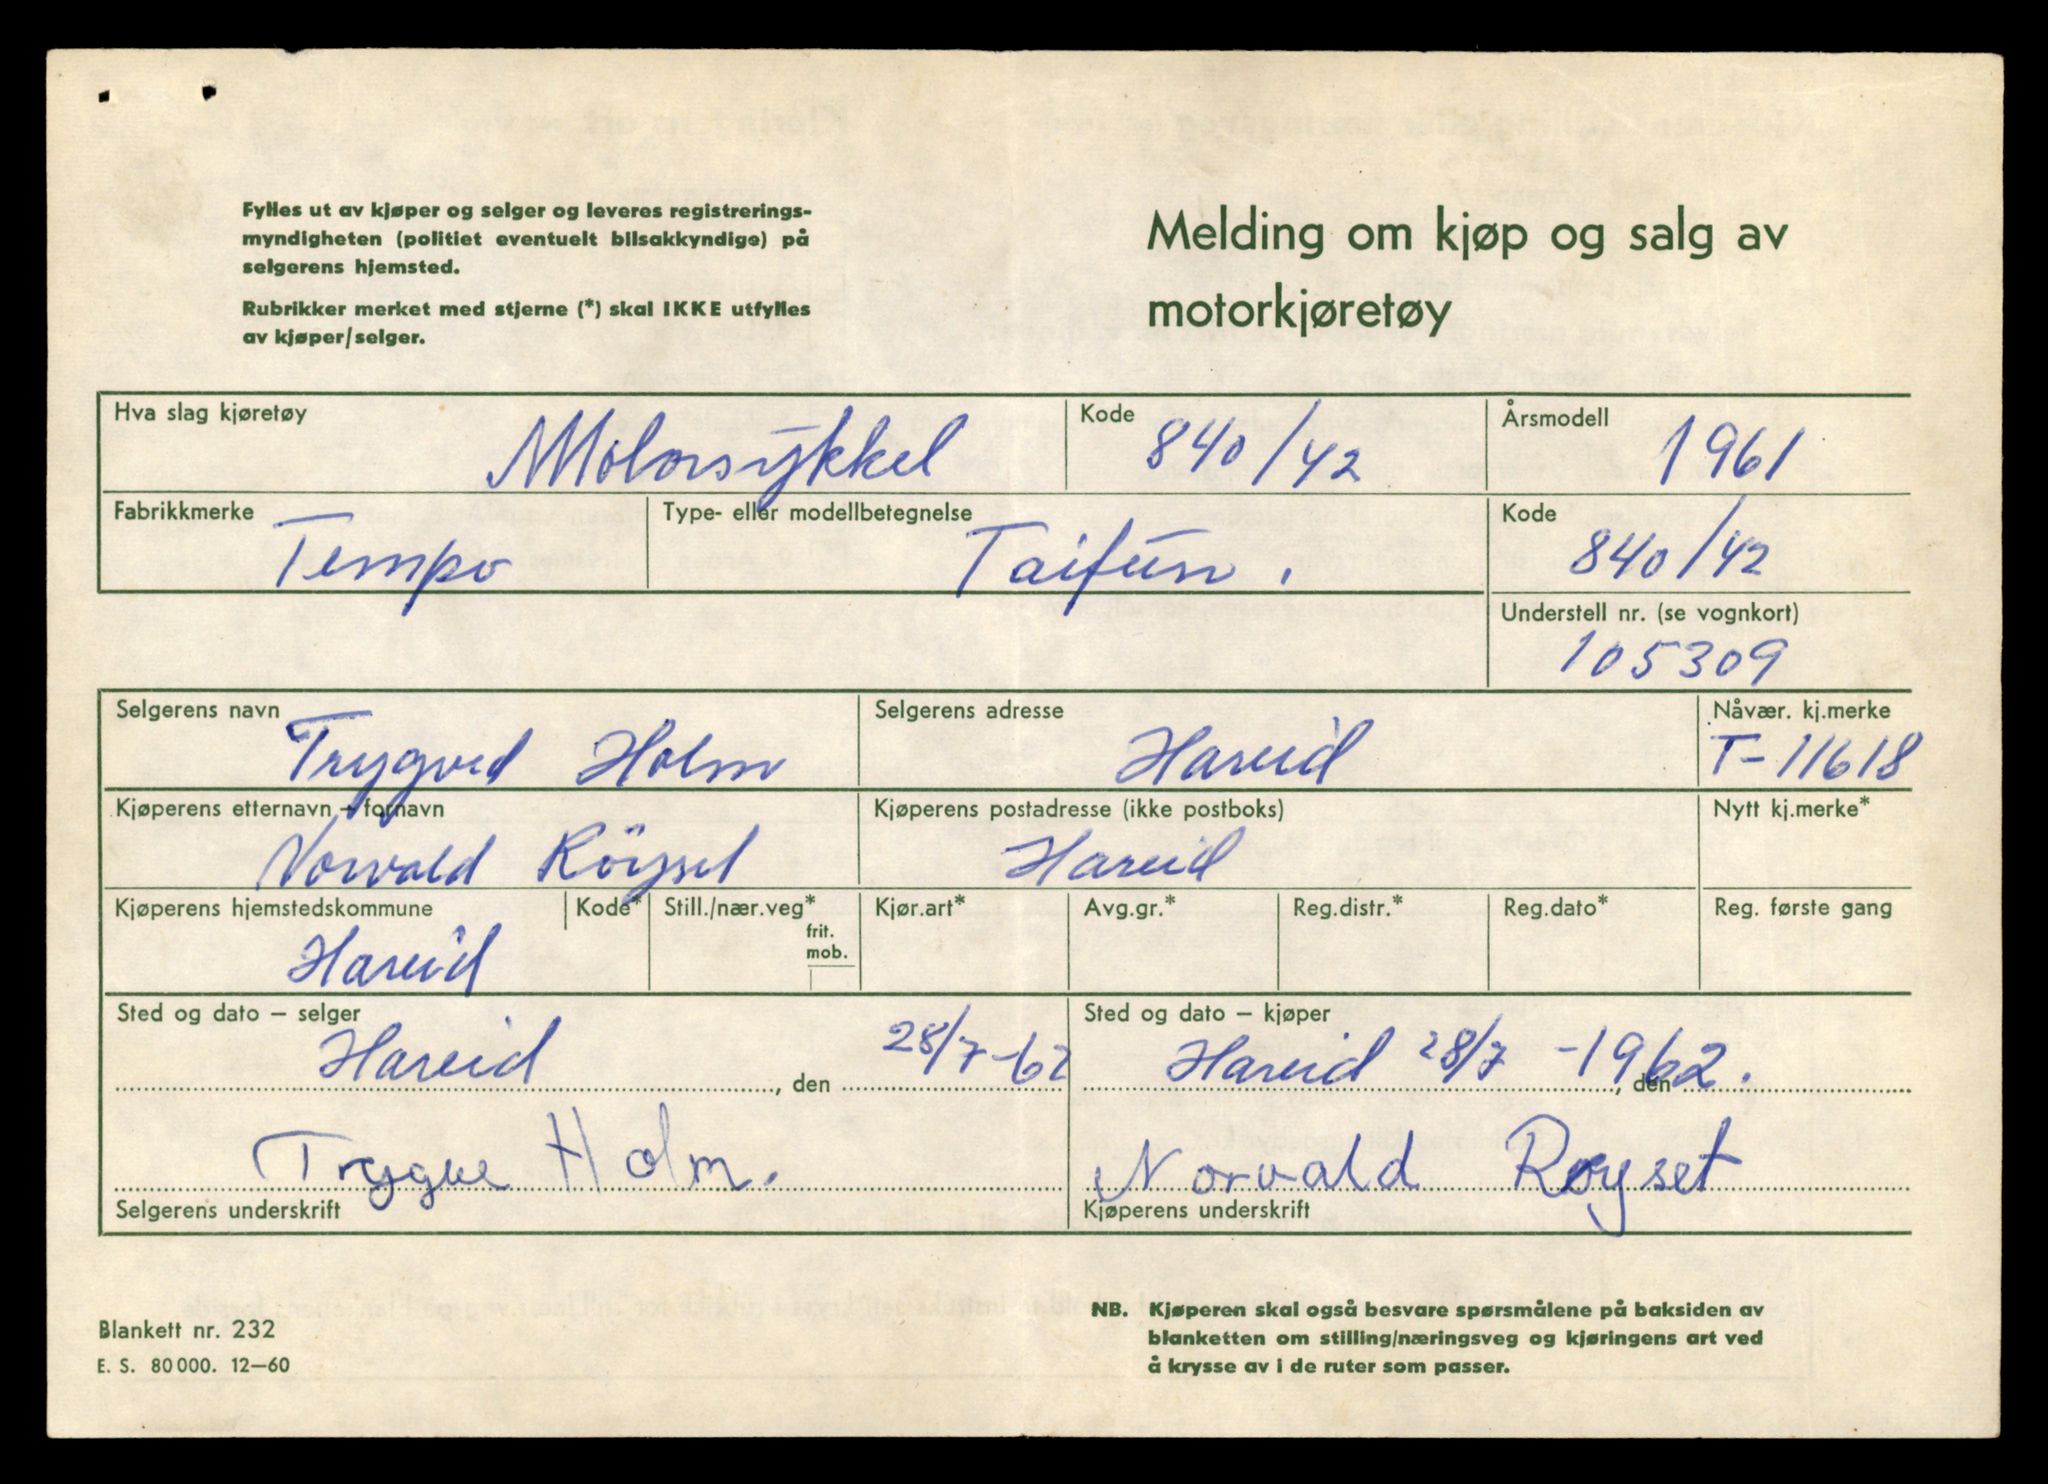 Fylles ut av kjøper og selger og leveres registrerings-
myndigheten (politiet eventuelt bilsakkyndige) på
selgerens hjemsted.
Rubrikker merket med stjerne (*) skal IKKE utfylles
av kjøper/selger.
Melding om kjøp og salg av
motorkjøretøy
Hva slag kjøretøy Motorsykkel
Kode 840/42
Årsmodell 1961
Fabrikkmerke Tempo
Type- eller modellbetegnelse Taifun.
Kode 840/42
Understell nr. (se vognkort)
105309
Selgerens navn Trygved Holm
Selgerens adresse Hareid
Nåvær. kj.merke
T-11618
Kjøperens etternavn – fornavn
Norvald Röyset
Kjøperens postadresse (ikke postboks)
Hareid
Nytt kj.merke*
Kjøperens hjemstedskommune
Hareid
Kode*
Still./nær.veg*
frit.
mob.
Kjør.art*
Avg.gr.*
Reg.distr.*
Reg.dato*
Reg. første gang
Sted og dato – selger
Hareid , den 28/7-62
Trygve Holm.
Selgerens underskrift
Sted og dato – kjøper
Hareid 28/7 -1962. , den
Norvald Røyset
Kjøperens underskrift
Blankett nr. 232
E. S. 80 000. 12–60
NB. Kjøperen skal også besvare spørsmålene på baksiden av
blanketten om stilling/næringsveg og kjøringens art ved
å krysse av i de ruter som passer.